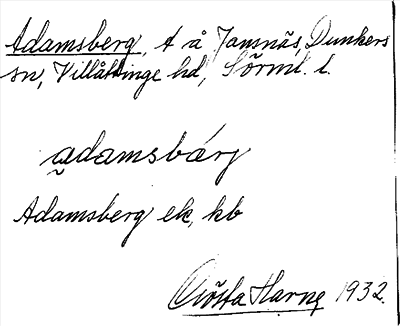 Adamsberg, t å Jansnäs, Dunkers
sn, Villåttinge hd, Sörml. l.
adamsbárj
Adamsberg ek, kb
Gösta Harne 1932.